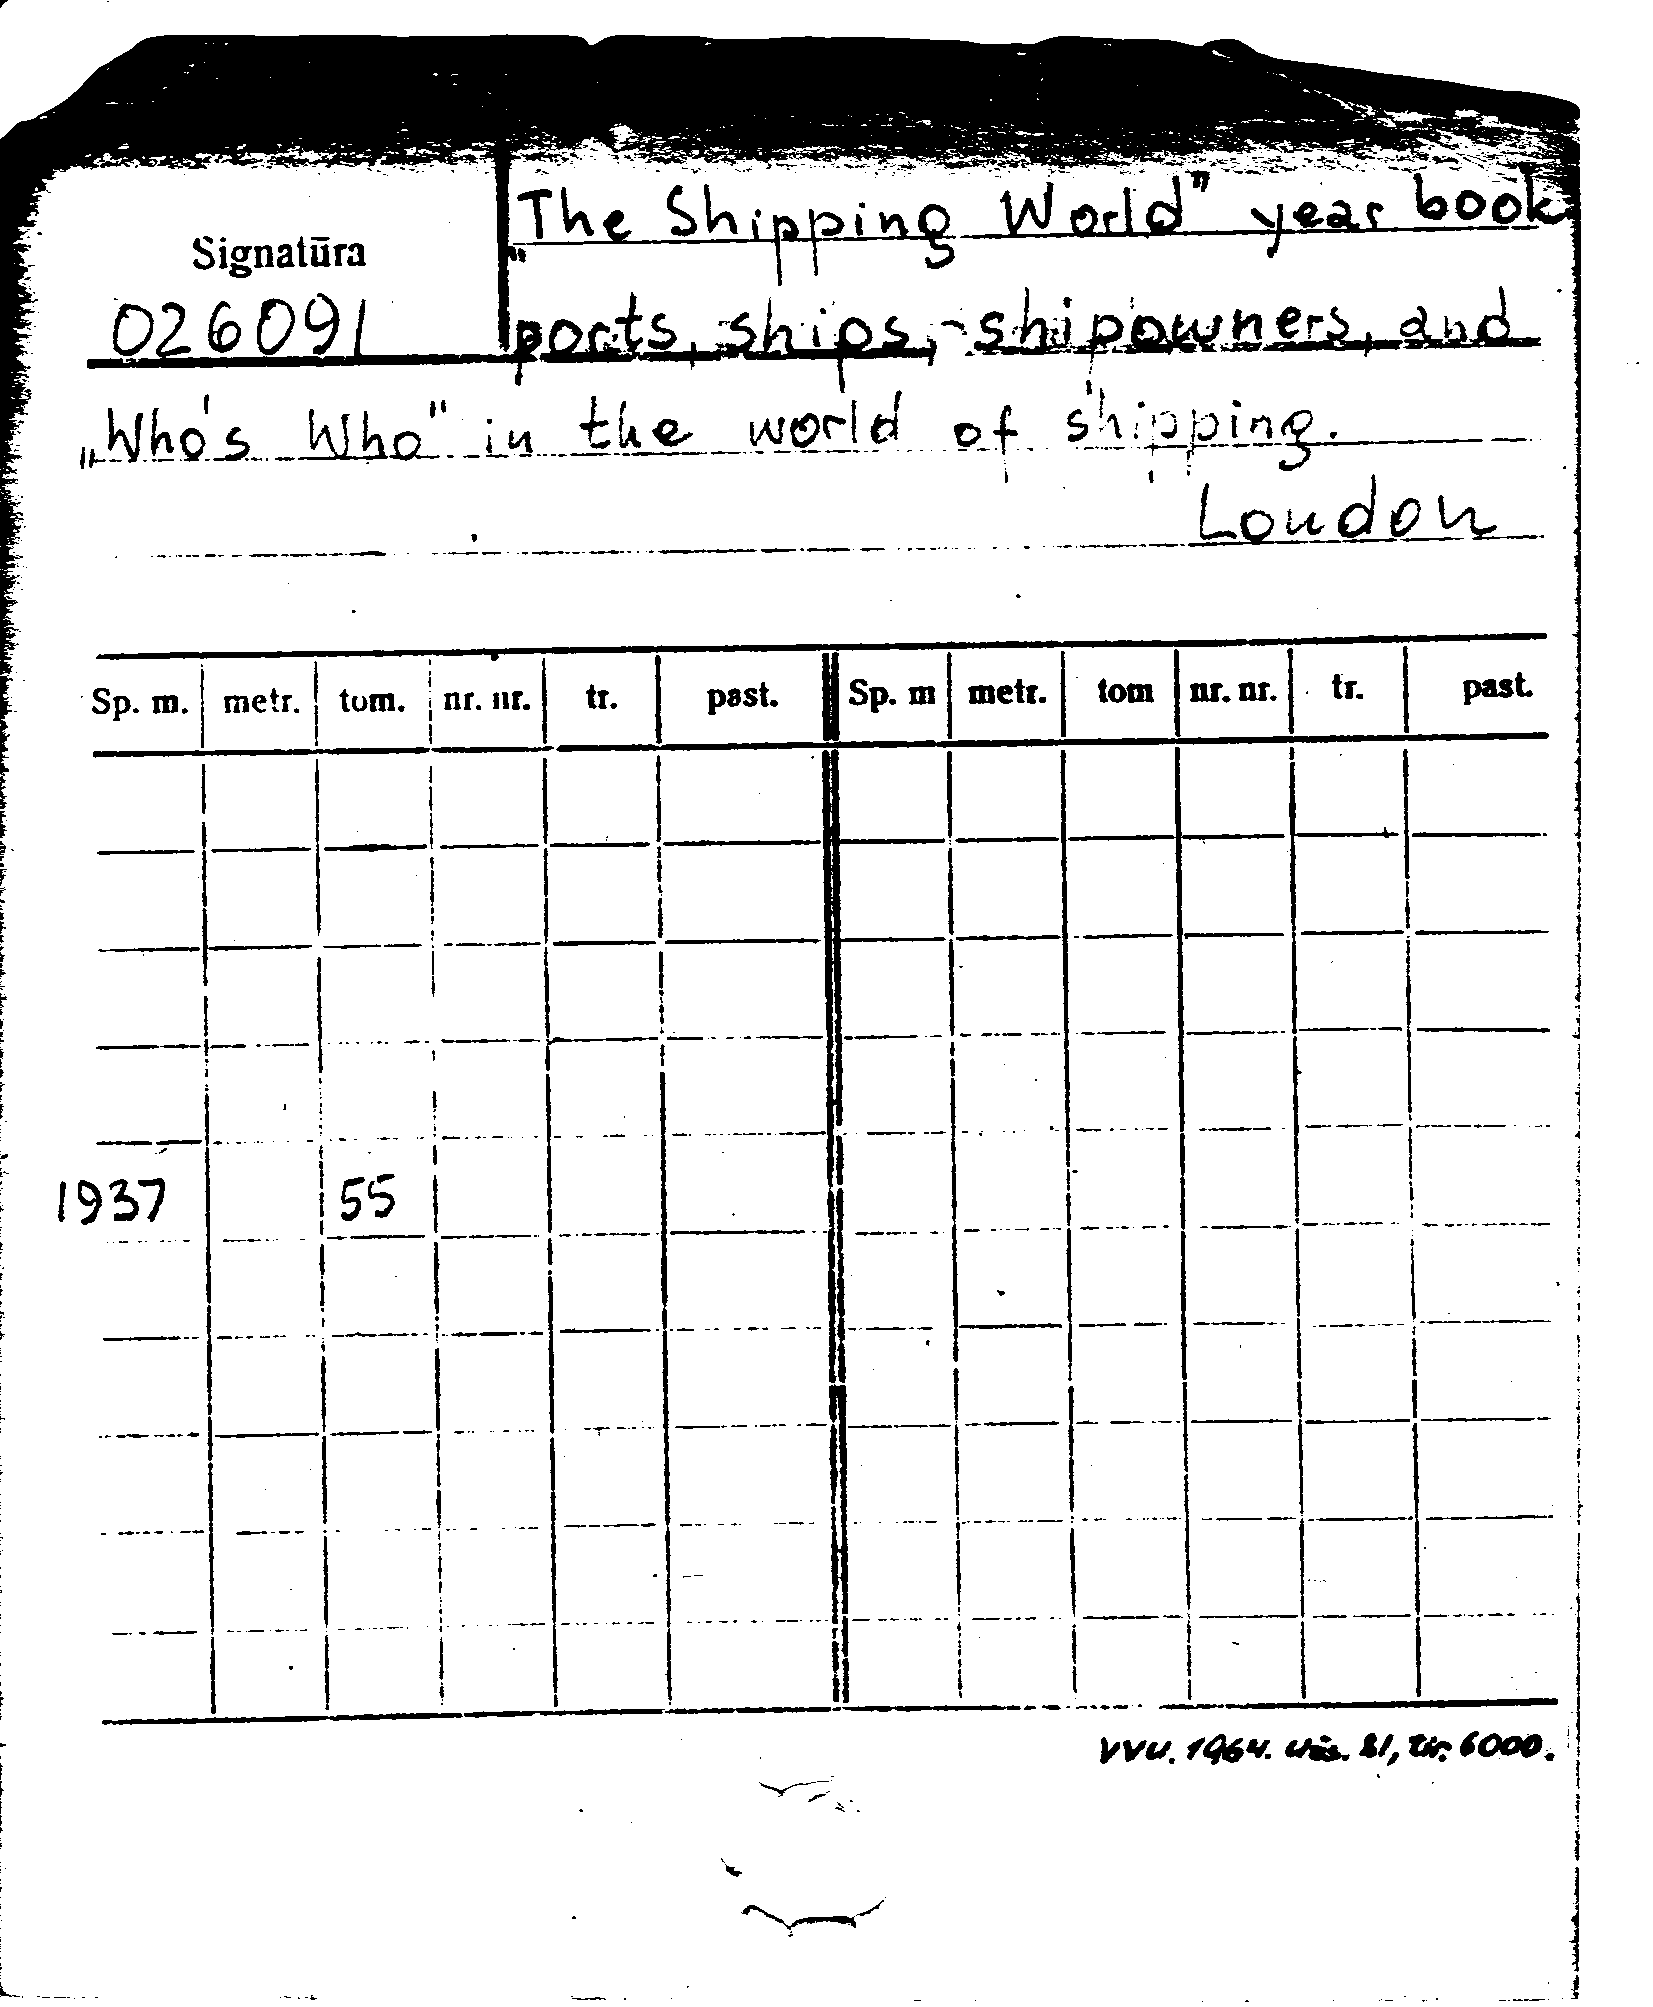 „The Shipping World" year book
Signatūra
026091
ports, ships, shipowners, and
„Who's Who" in the world of shipping.
London
Sp. m. metr. tom. nr. nr. tr. past. Sp. m metr. tom nr. nr. tr. past.
1937 55
VVU. 1964. Užs. 81, tir. 6000.